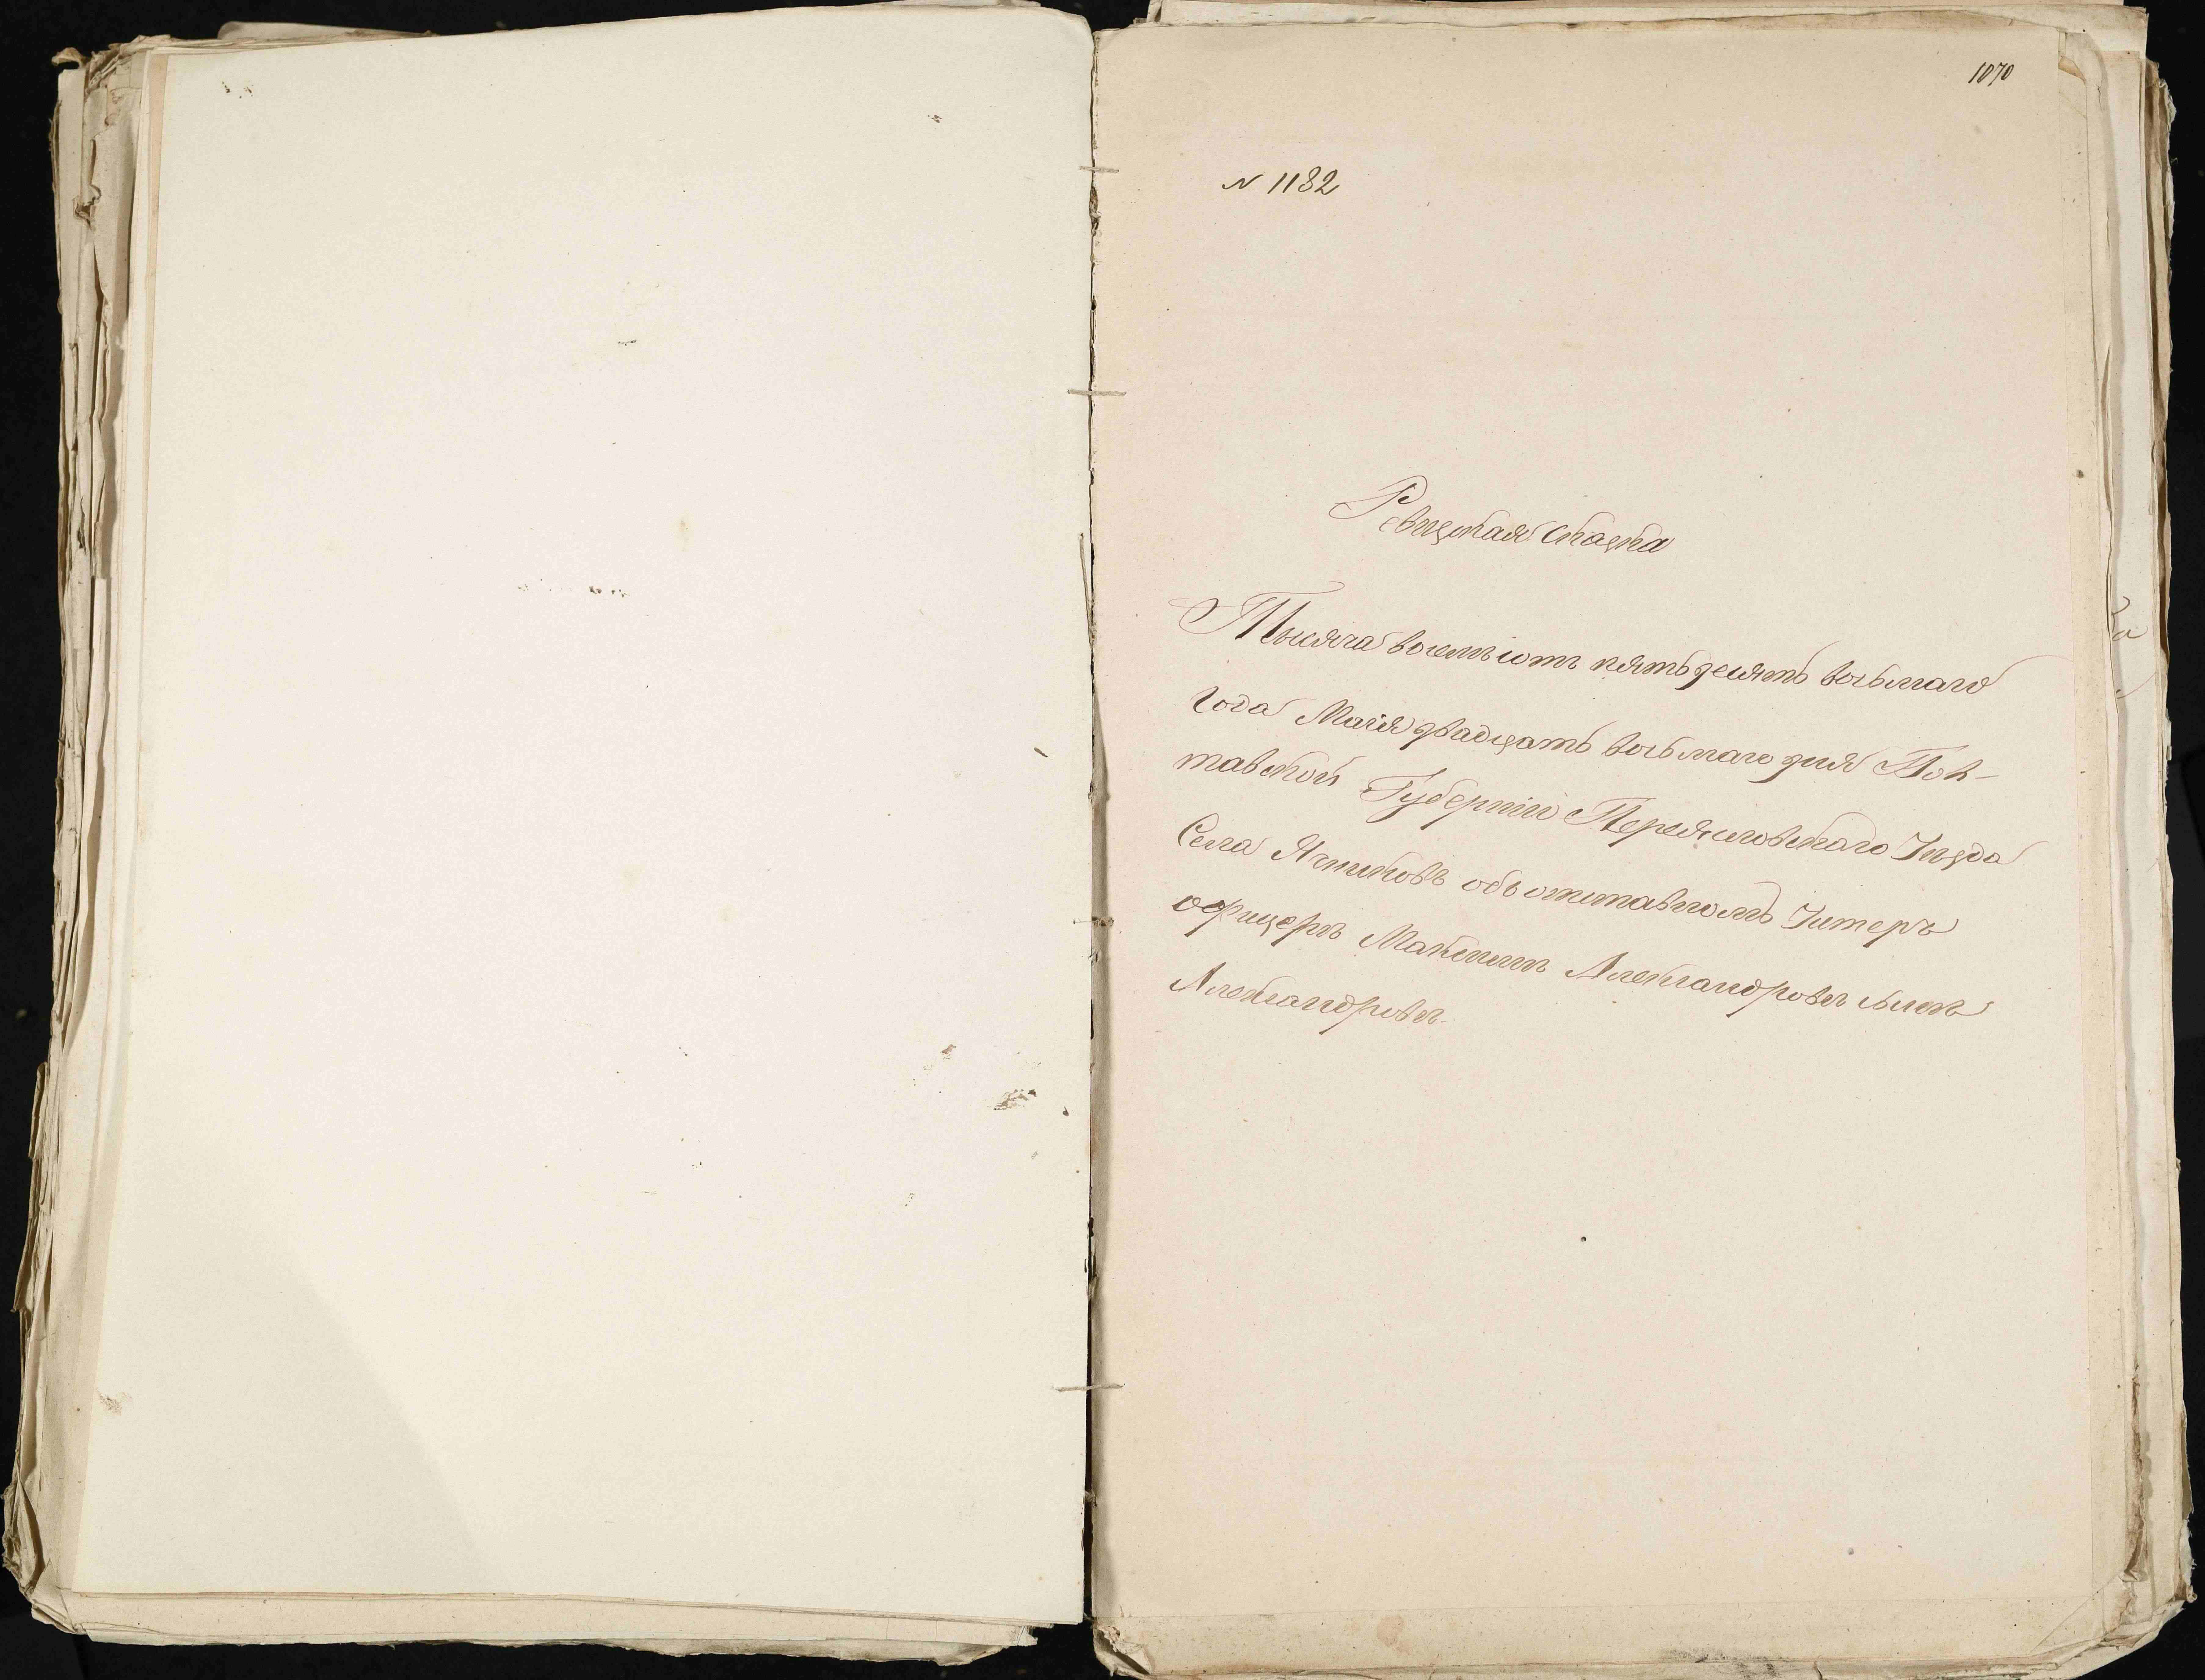 1070
N 1182
Ревизская сказка
Тысяча восемьсотъ пятьдесятъ восьмаго
года Маія двадцать восьмаго дня Пол-
тавской Губерніи Переяславскаго Уезда
Села Ячниковъ объ отставномъ Унтеръ
офицеръ Максимъ Александровъ сынъ
Александровъ.